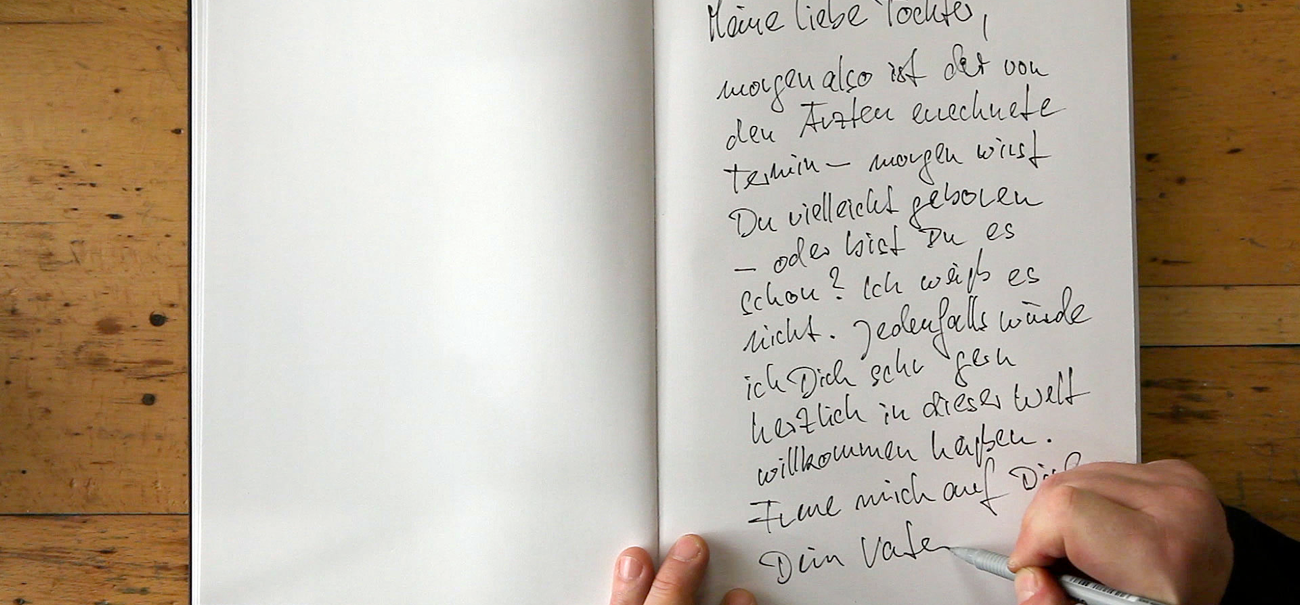 Meine liebe Tochter,
morgen also ist der von
den Ärzten errechnete
Termin – morgen wirst
Du vielleicht geboren
– oder bist Du es
schon? Ich weiß es
nicht. Jedenfalls würde
ich Dich sehr gern
herzlich in dieser Welt
willkommen heißen.
Freue mich auf Dich
Dein Vater